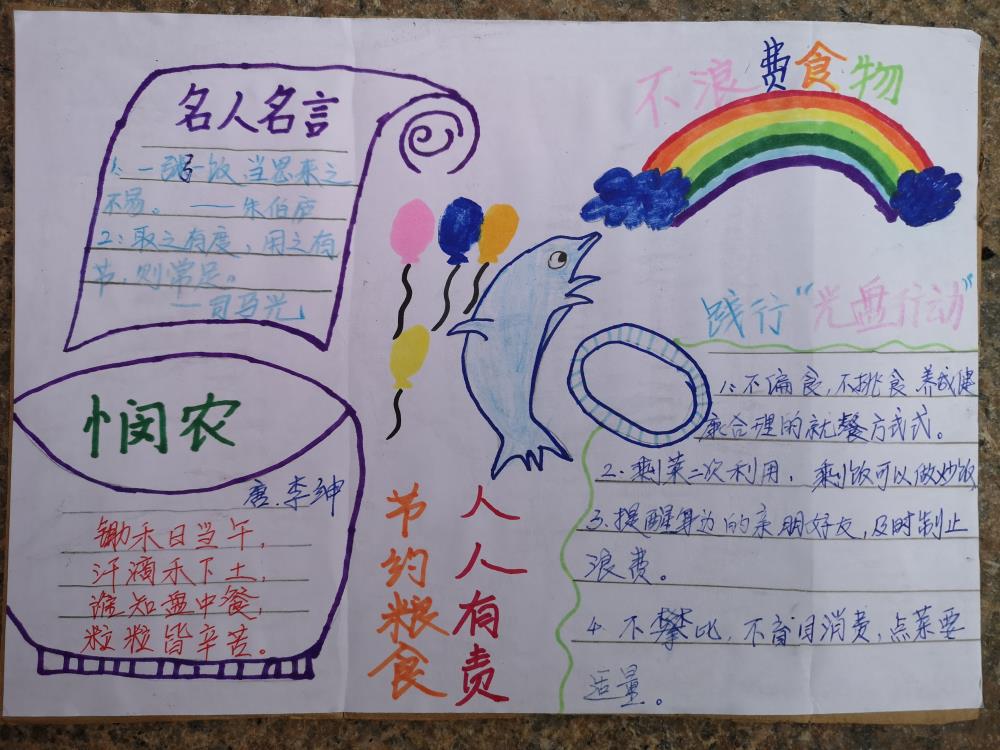 名人名言
1:一粥一饭,当思来之
不易。——朱伯庐
2:取之有度,用之有
节,则常足。
——司马光
悯农
唐.李绅
锄禾日当午,
汗滴禾下土,
谁知盘中餐,
粒粒皆辛苦。
节约粮食
人人有责
不浪费食物
践行“光盘行动”
1:不偏食,不挑食养成健
康合理的就餐方式式。
2.剩菜二次利用,剩饭可以做炒饭
3.提醒身边的亲朋好友,及时制止
浪费。
4.不攀比,不盲目消费,点菜要
适量。